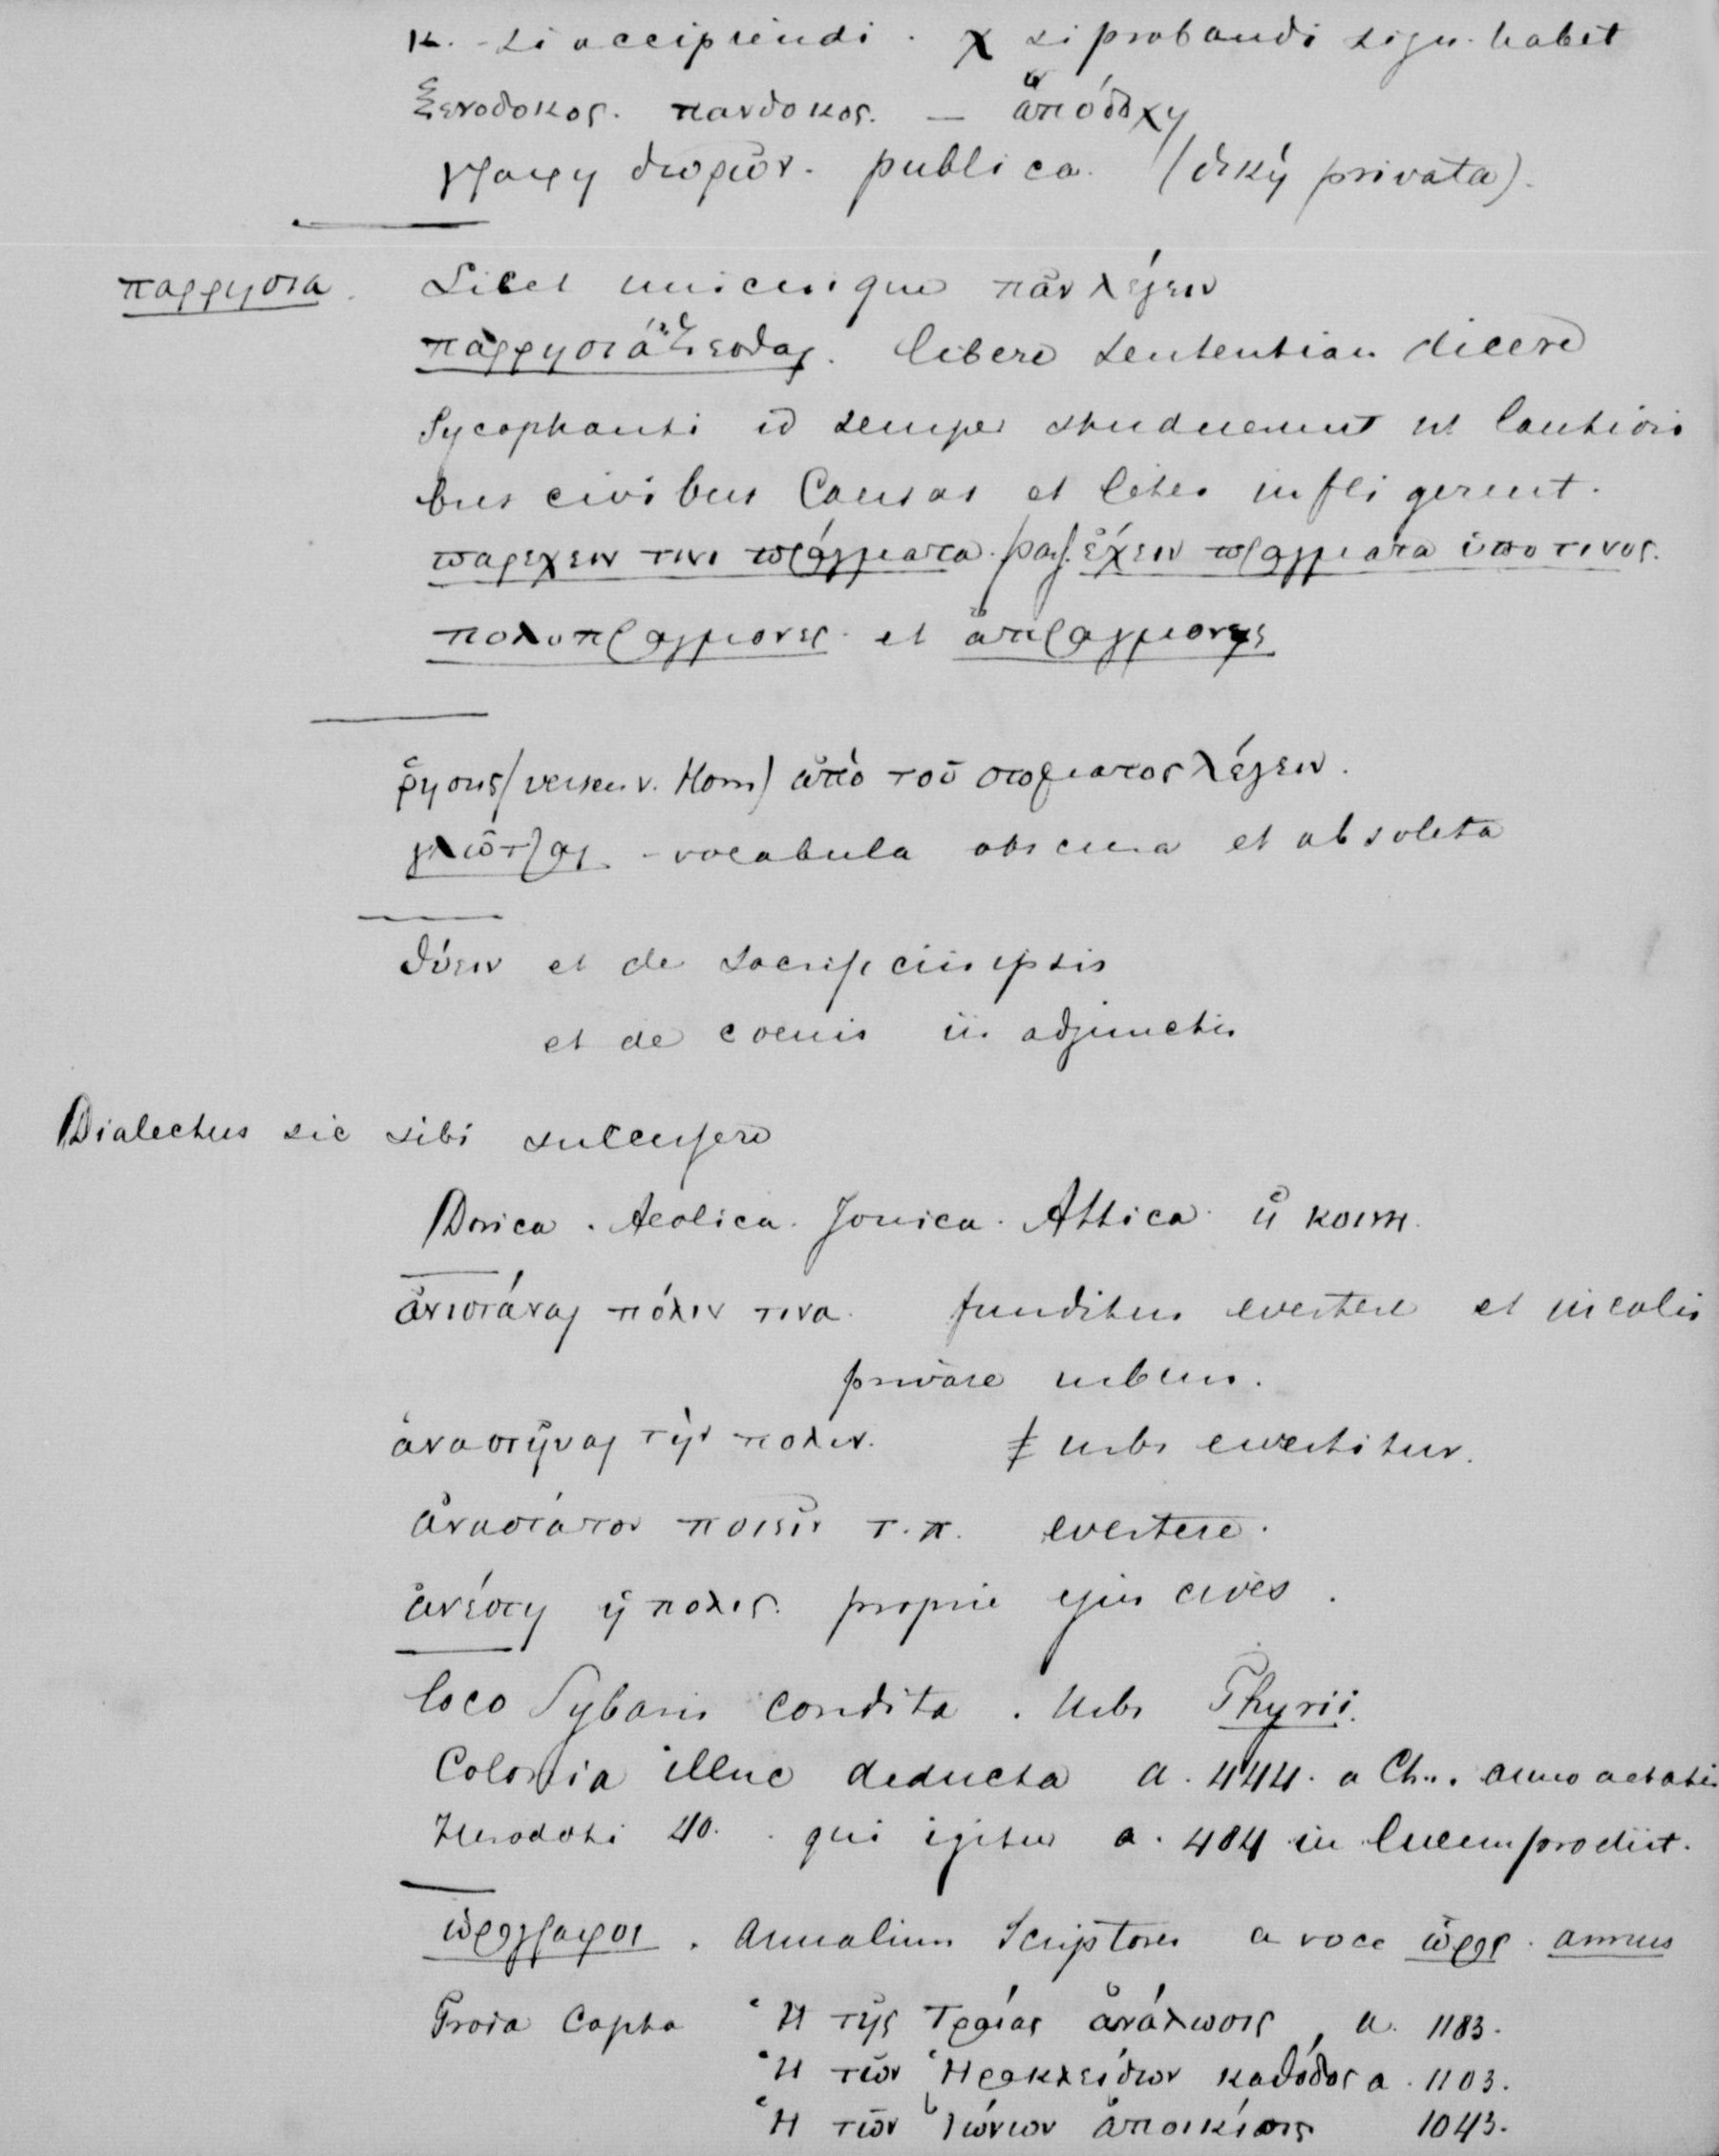 κ. - si accipiendi . χ si probandi sign. habet
ξενοδοκος. πανδοκος. — ἀποδοχη
γραφη δωρων. publica. (δικη privata).
παρρησια. Licet unicuique πᾶν λέγειν
παρρησιάζεσθαι. libere sententiam dicere
Sycophanti id semper studuerunt ut lautiori
bus civibus Causas et lites infligerent.
παρεχειν τινι πράγματα. pass. ἔχειν πραγματα ὑπο τινος.
πολυπραγμονες. et ἀπραγμονες
ῥησις (versen v. Hom) ἀπὸ τοῦ στοματος λέγειν.
γλῶτται. - vocabula obscura et absoleta
θύειν et de sacrificiis ipsis
et de coenis iis adjunctis
Dialectus sic sibi succesere
Dorica. Aeolica. Jonica. Attica. ἡ κοινη.
ἀνιστάναι πόλιν τινα. funditus evertere et incolis
privare urbem.
ἀναστῆναι τὴν πολιν. urbs evertitur.
ἀναστατον ποιεῖν τ. π. evertere.
ἀνέστη ἡ πολις. proprie ejus cives.
loco Sybaris condita. Urbs Thyrii.
Colonia illuc deducta a. 444. a Ch.. anno aetatis
Herodoti 40. qui igitur a. 484 in lucem prodiit.
ὡρογραφοι. Annalium Scriptores a voce ὧρος. annus
Troia Capta Ἡ τῆς Τροίας ἀνάλωσις, a. 1183.
Ἡ τῶν Ἡρακλείδων καθόδος a. 1103.
Ἡ τῶν Ἰώνων ἀποικίσις 1043.